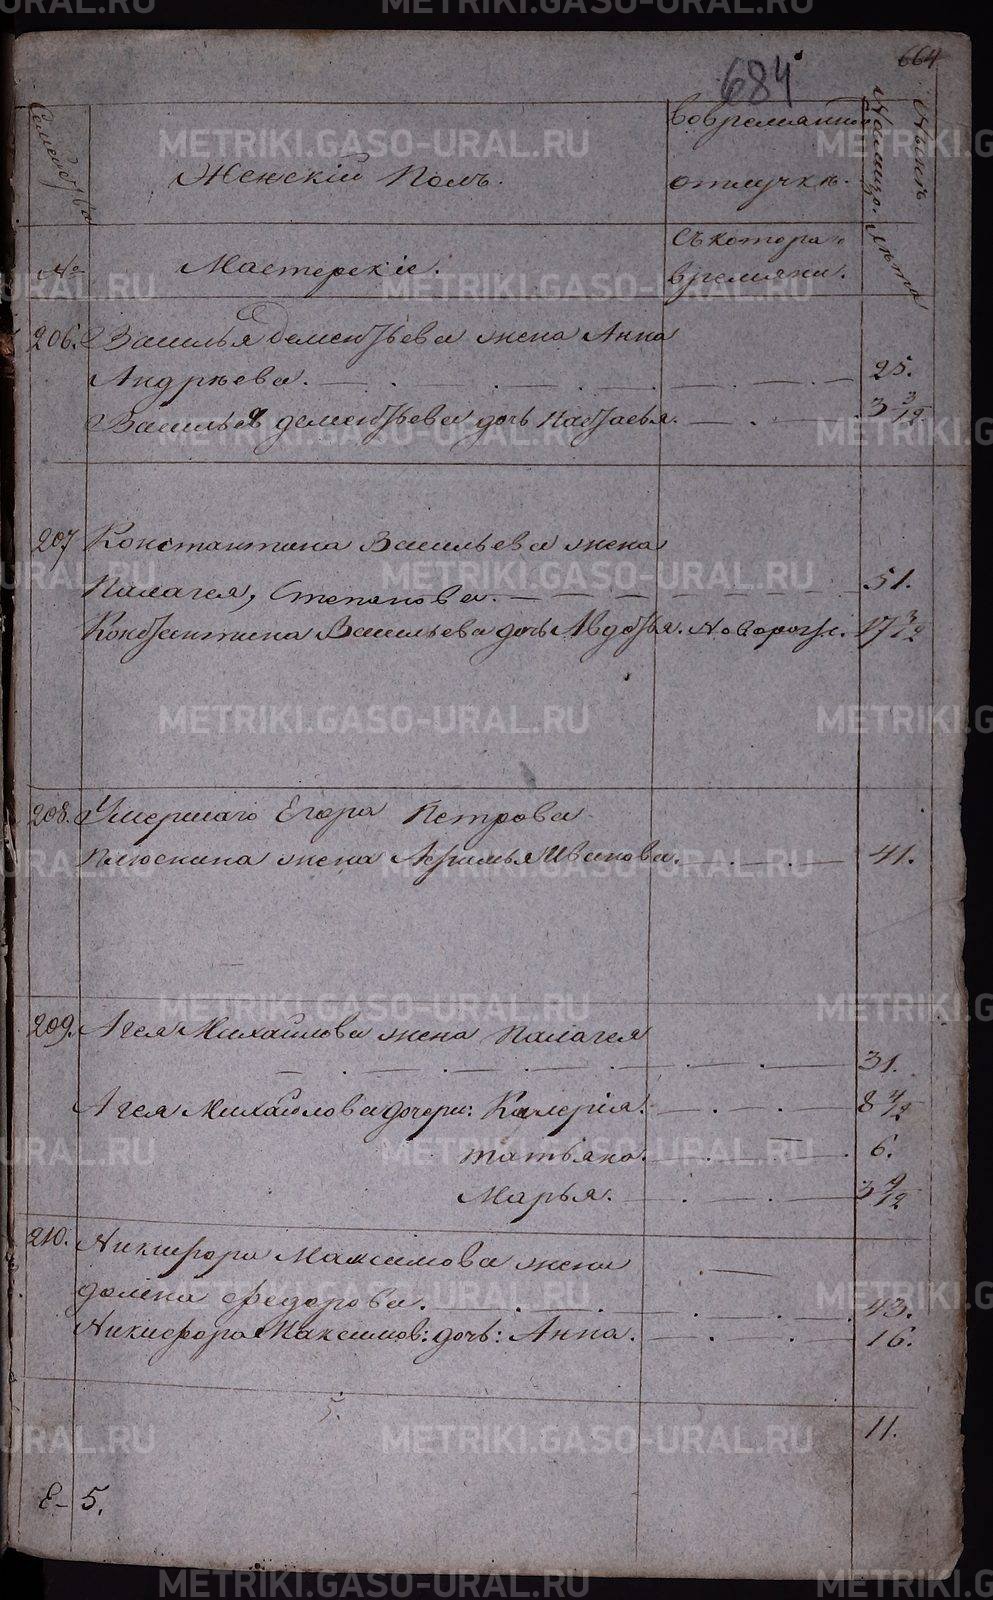 664
684
Семейства
Женскій Полъ.
вовремянной
отлучкѣ.
Нынѣ
Налицо.
№
Мастерскіе.
съкотора
времяни.
лѣта
206. Василья дементьева жена Анна
Андрѣева. 25.
Васильев дементьева дочь Настасья. 3 3/12
207 Константина Васильева жена
Палагея, Степанова. 51.
Константина Васильева дочь Авдотья. 17 3/12
208. Умершаго Егора Петрова
Плюснина жена Иванова. 41.
209. Агея Михайлова жена Палагея
31.
Агея Михайлова дочери: Калерія. 8 4/12
татьяна. 6.
Марья. 3 9/12
210. Никифора Максимова жена
федорова. 43.
Никифора Максимов: дочь: Анна. 16.
5.
11.
5.
METRIKI.GASO-URAL.RU